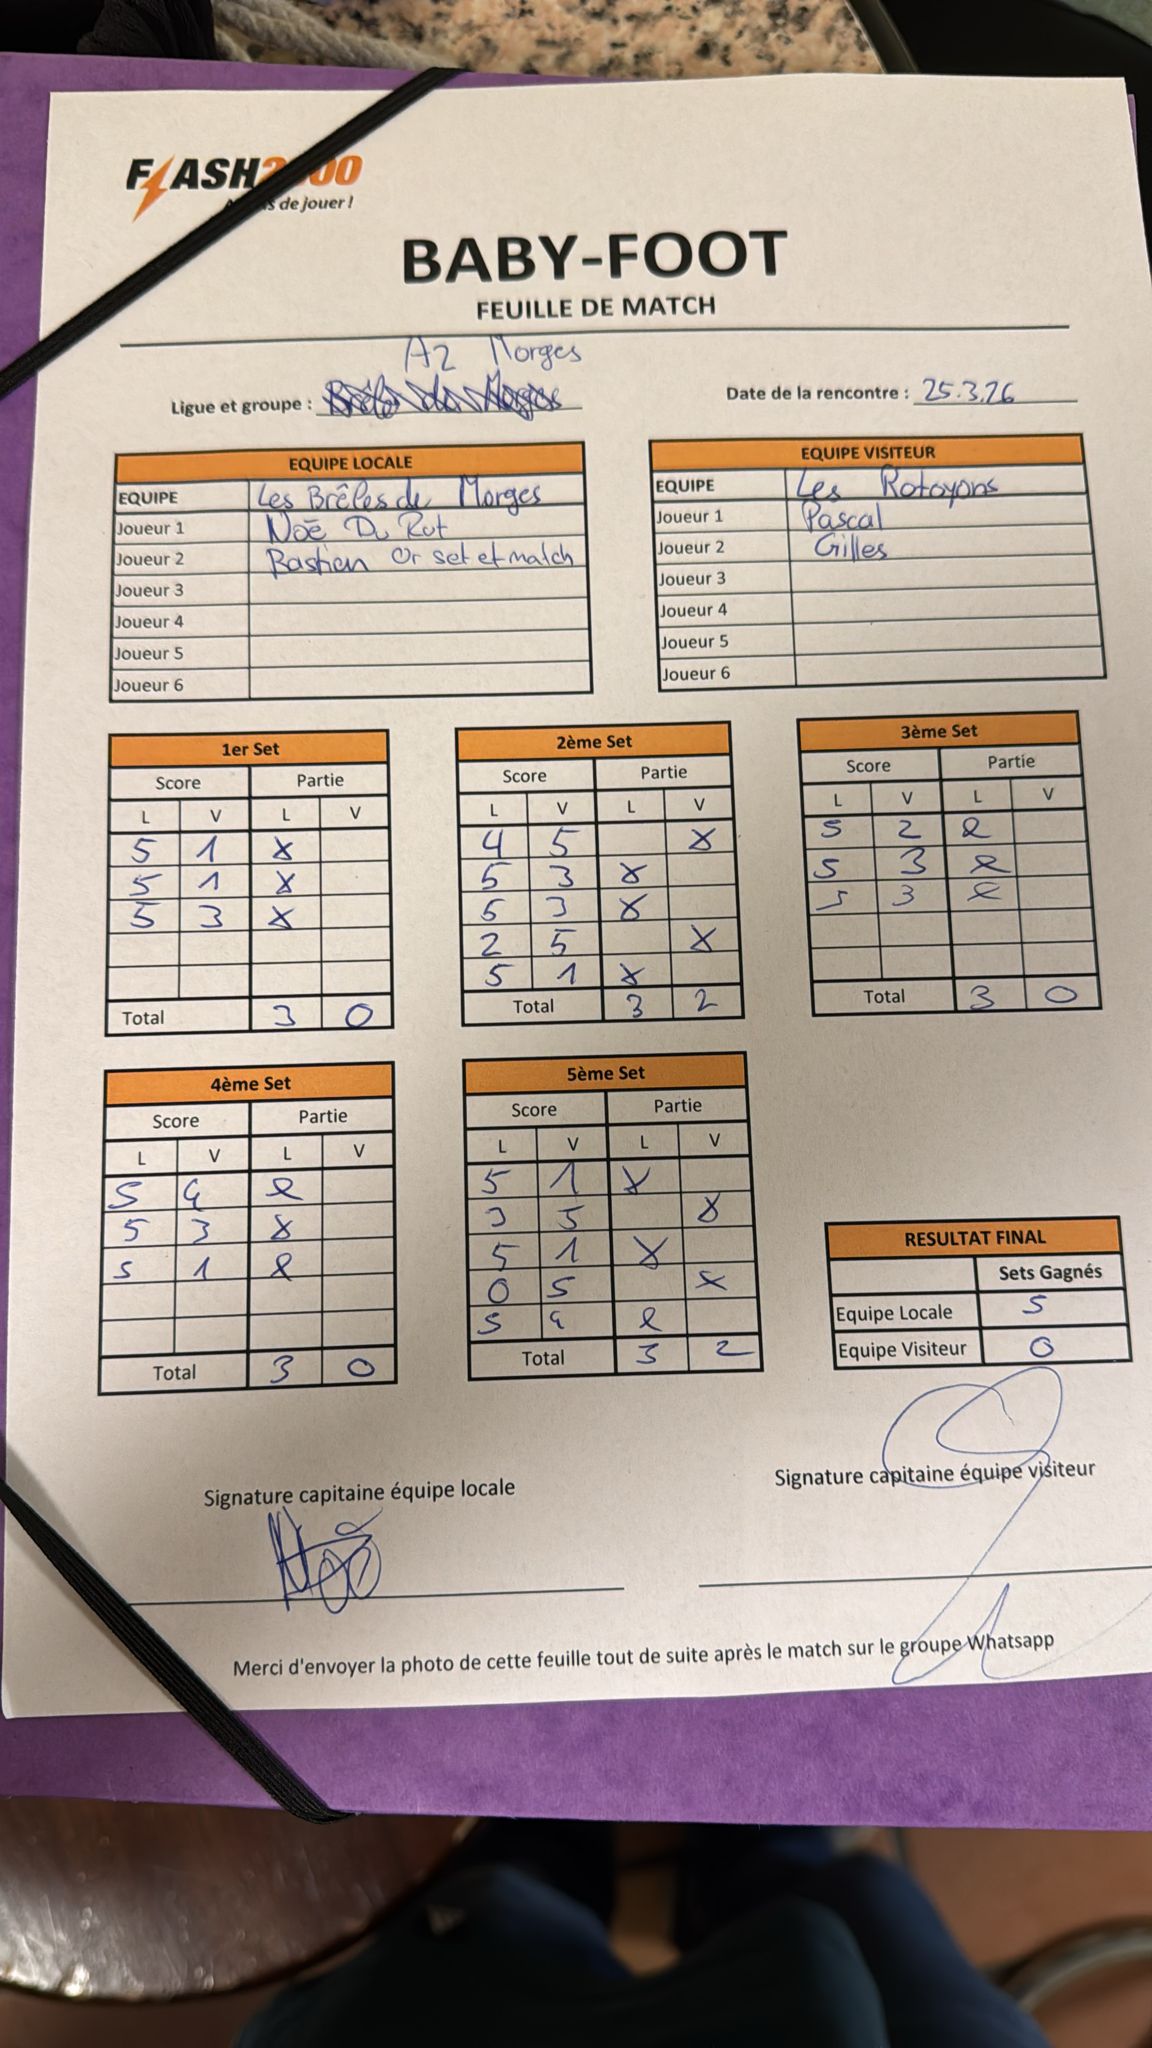 FLASH2000
de jouer !
BABY-FOOT
FEUILLE DE MATCH
A2 Morges
Ligue et groupe :
Date de la rencontre : 25.3.26
EQUIPE LOCALE
EQUIPE Les Brêles de Morges
Joueur 1 Noë Du Rut
Joueur 2 Bastian Or set et match
Joueur 3
Joueur 4
Joueur 5
Joueur 6
EQUIPE VISITEUR
EQUIPE Les Rotoyons
Joueur 1 Pascal
Joueur 2 Gilles
Joueur 3
Joueur 4
Joueur 5
Joueur 6
1er Set
Score Partie
L V L V
5 1 x
5 1 x
5 3 x
Total 3 0
2ème Set
Score Partie
L V L V
4 5 x
5 3 x
5 3 x
2 5 x
5 1 x
Total 3 2
3ème Set
Score Partie
L V L V
5 2 x
5 3 x
5 3 x
Total 3 0
4ème Set
Score Partie
L V L V
5 4 x
5 3 x
5 1 x
Total 3 0
5ème Set
Score Partie
L V L V
5 1 x
3 5 x
5 1 x
0 5 x
5 4 x
Total 3 2
RESULTAT FINAL
Sets Gagnés
Equipe Locale 5
Equipe Visiteur 0
Signature capitaine équipe locale
Signature capitaine équipe visiteur
Merci d'envoyer la photo de cette feuille tout de suite après le match sur le groupe Whatsapp